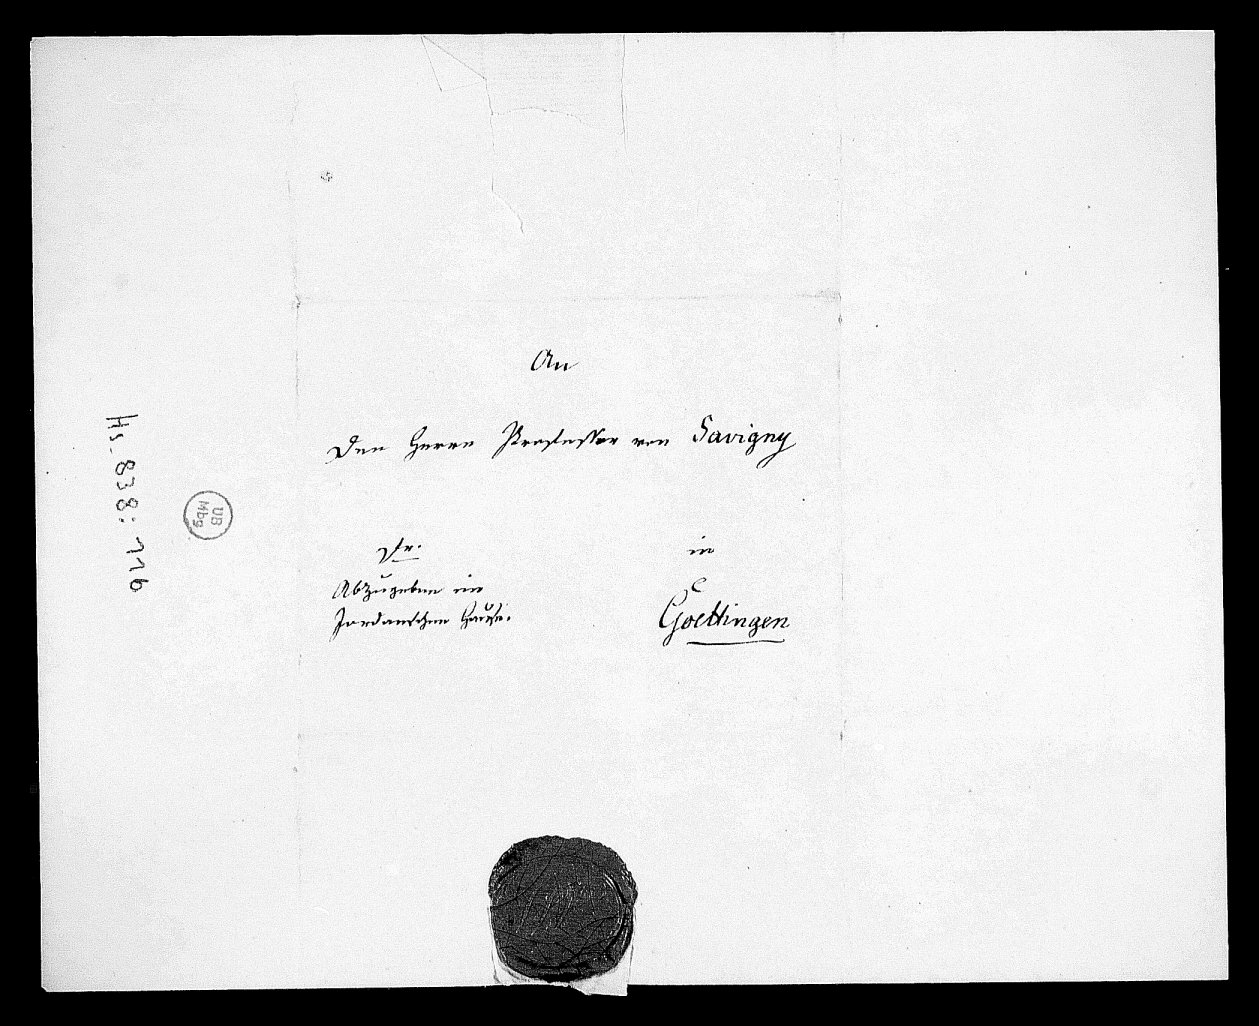 An
Den Herrn Professor von Savigny
fr.
in
Abzugeben im
Jordanschen Hause.
Goettingen
Hs. 838: 116
UB
Mbg